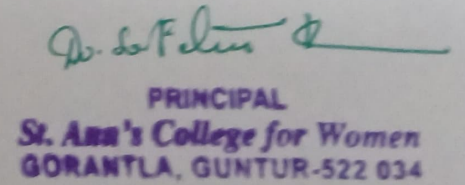 Dr. Sr
PRINCIPAL
St. Ann's College for Women
GORANTLA, GUNTUR-522 034